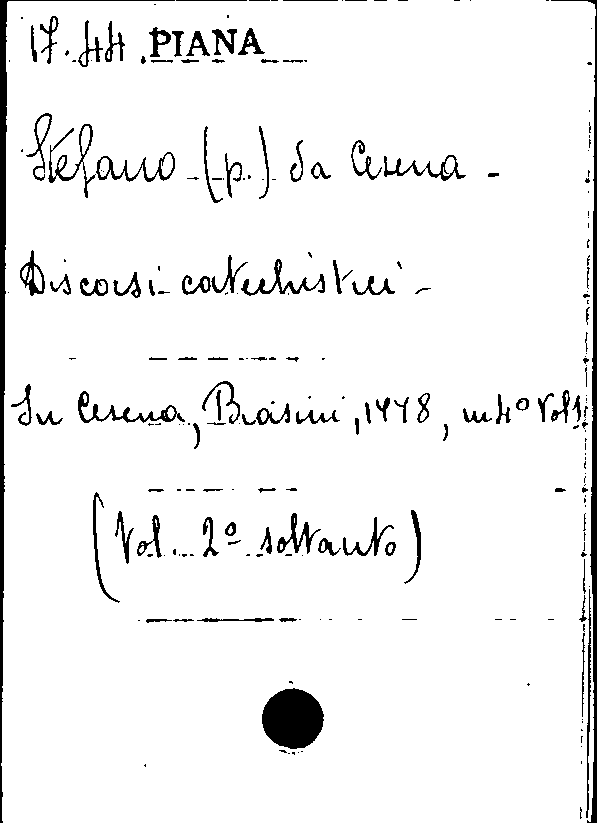 17.44 PIANA
Stefano (p.) da Cesena -
Discorsi catechistici -
In Cesena, Biasini, 1778, in 4º Vol 1
(Vol. 2º soltanto)